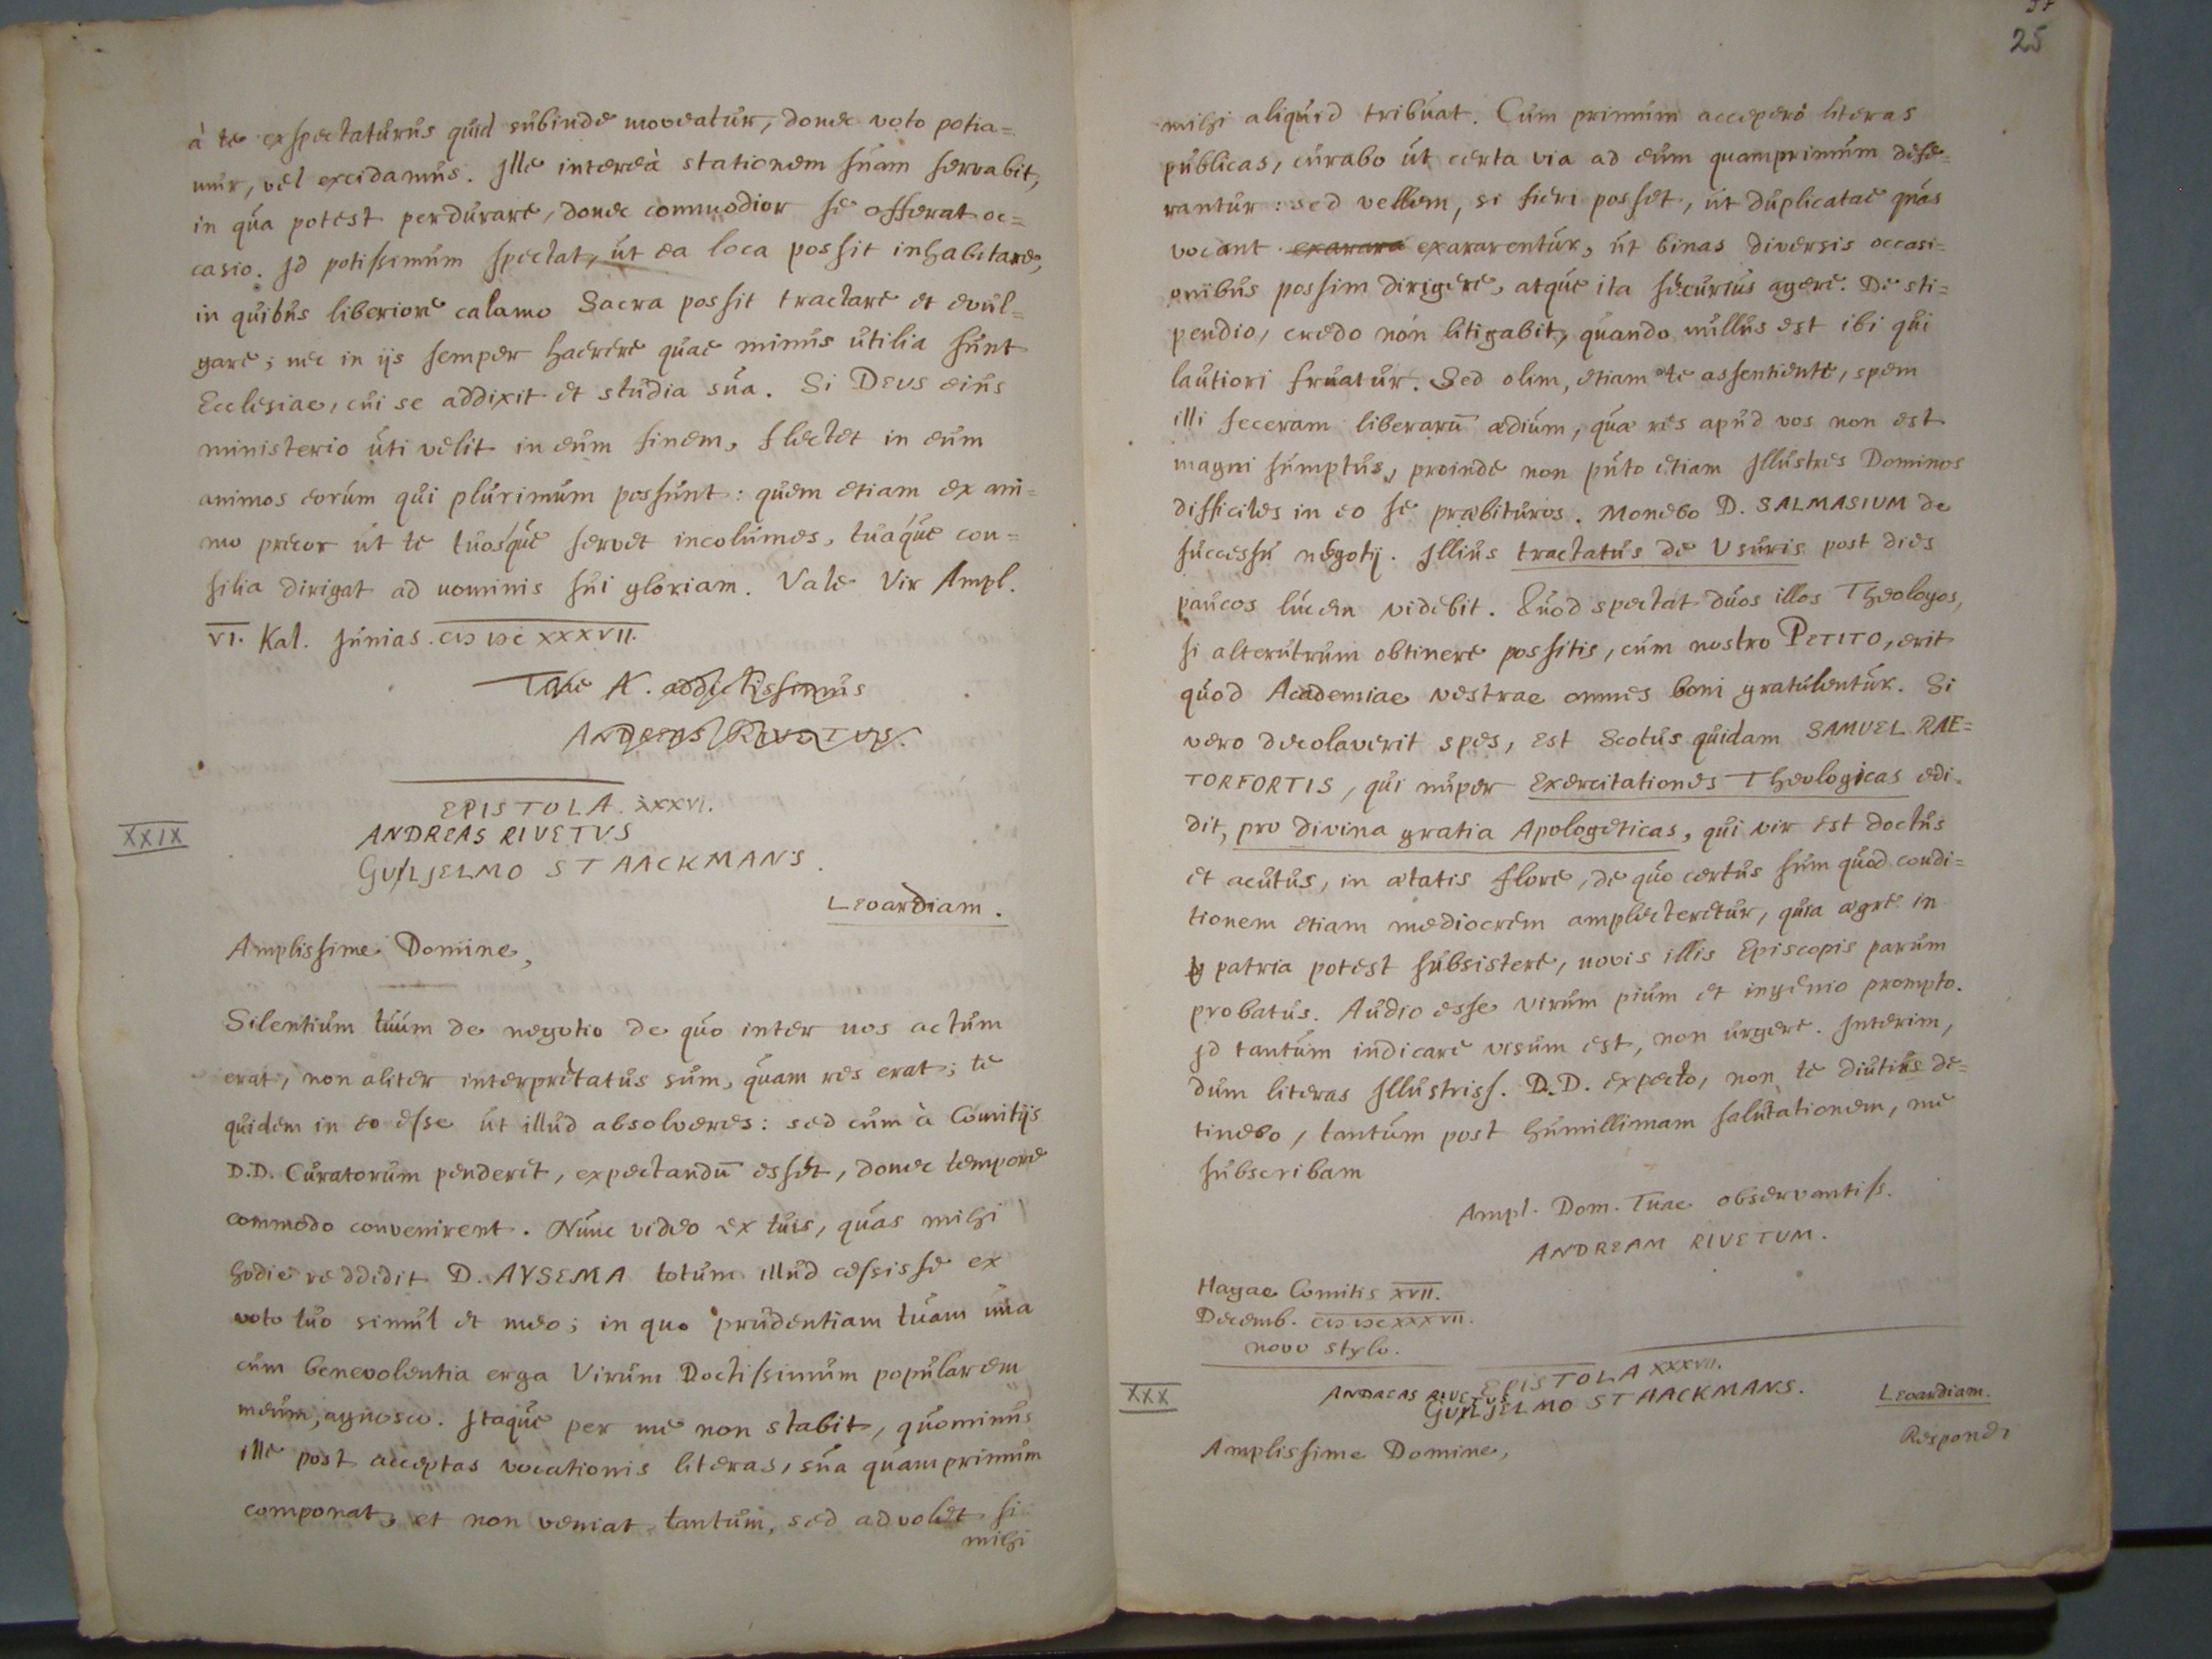 à te exspectaturus quid subinde moveatur, donec voto potia=
mur, vel excidamus. Ille intereà stationem suam servabit,
in qua potest perdurare, donec commodior se offerat oc=
casio. Id potissimum spectat, ut ea loca possit inhabitare,
in quibus liberiore calamo Sacra possit tractare et evul=
gare; nec in ijs semper haerere quae minus utilia sunt
Ecclesiae, cui se addixit et studia sua. Si DEUS eius
ministerio uti velit in eum finem, flectet in eum
animos eorum qui plurimum possunt: quem etiam ex ani=
mo precor ut te tuosque servet incolumes, tuaque con=
silia dirigat ad nominis sui gloriam. Vale Vir Ampl.
VI. Kal. Junias. CIↃ IↃC XXXVII.
Tuae A. addictissimus
ANDREAS RIVETUS.
EPISTOLA XXXVI.
XXIX
ANDREAS RIVETVS
GUILJELMO STAACKMANS.
Leoardiam.
Amplissime Domine,
Silentium tuum de negotio de quo inter nos actum
erat, non aliter interpretatus sum, quam res erat; te
quidem in eo esse ut illud absolveres: sed cum à Comitijs
D.D. Curatorum penderet, expectandū esset, donec tempore
commodo convenirent. Nunc video ex tuis, quas mihi
hodie reddidit D. AYSEMA totum illud cessisse ex
voto tuo simul et meo; in quo prudentiam tuam una
cum benevolentia erga Virum Doctissimum popularem
meum, agnosco. Itaque per me non stabit, quominus
ille post acceptas vocationis literas, sua quamprimum
componat, et non veniat tantum, sed advolet si
mihi
25
mihi aliquid tribuat. Cum primum accepero literas
publicas, curabo ut certa via ad eum quamprimum defe=
rantur: sed vellem, si fieri posset, ut duplicatae quas
vocant exarara exararentur, ut binas diversis occasi=
onibus possim dirigere, atque ita securius agere. De sti=
pendio, credo non litigabit, quando nullus est ibi qui
lautiori fruatur. Sed olim, etiam te assentiente, spem
illi feceram liberarū aedium, quae res apud vos non est
magni sumptus, proinde non puto etiam Illustres Dominos
difficiles in eo se praebituros. Monebo D. SALMASIUM de
successu negotij. Illius tractatus de Usuris post dies
paucos lucem videbit. Quod spectat duos illos Theologos,
si alterutrum obtinere possitis, cum nostro PETITO, erit
quod Academiae vestrae omnes boni gratulentur. Si
vero decolaverit spes, est Scotus quidam SAMUEL RAE=
TORFORTIS, qui nuper Exercitationes Theologicas edi=
dit, pro divina gratia Apologeticas, qui vir est doctus
et acutus, in aetatis flore, de quo certus sum quod condi=
tionem etiam mediocrem amplecteretur, quia aegre in
patria potest subsistere, novis illis Episcopis parum
probatus. Audio esse virum pium et ingenio prompto.
Id tantum indicare visum est, non urgere. Interim,
dum literas Illustriss. D.D. expecto, non te diutius de=
tinebo, tantum post humillimam salutationem, me
subscribam
Ampl. Dom. Tuae observantiss.
ANDREAM RIVETUM.
Hagae Comitis XVII.
Decemb. CIↃ IↃC XXXVII.
novo stylo.
EPISTOLA XXXVII.
XXX
ANDREAS RIVETUS
GUILJELMO STAACKMANS.
Leoardiam.
Amplissime Domine,
Respondi